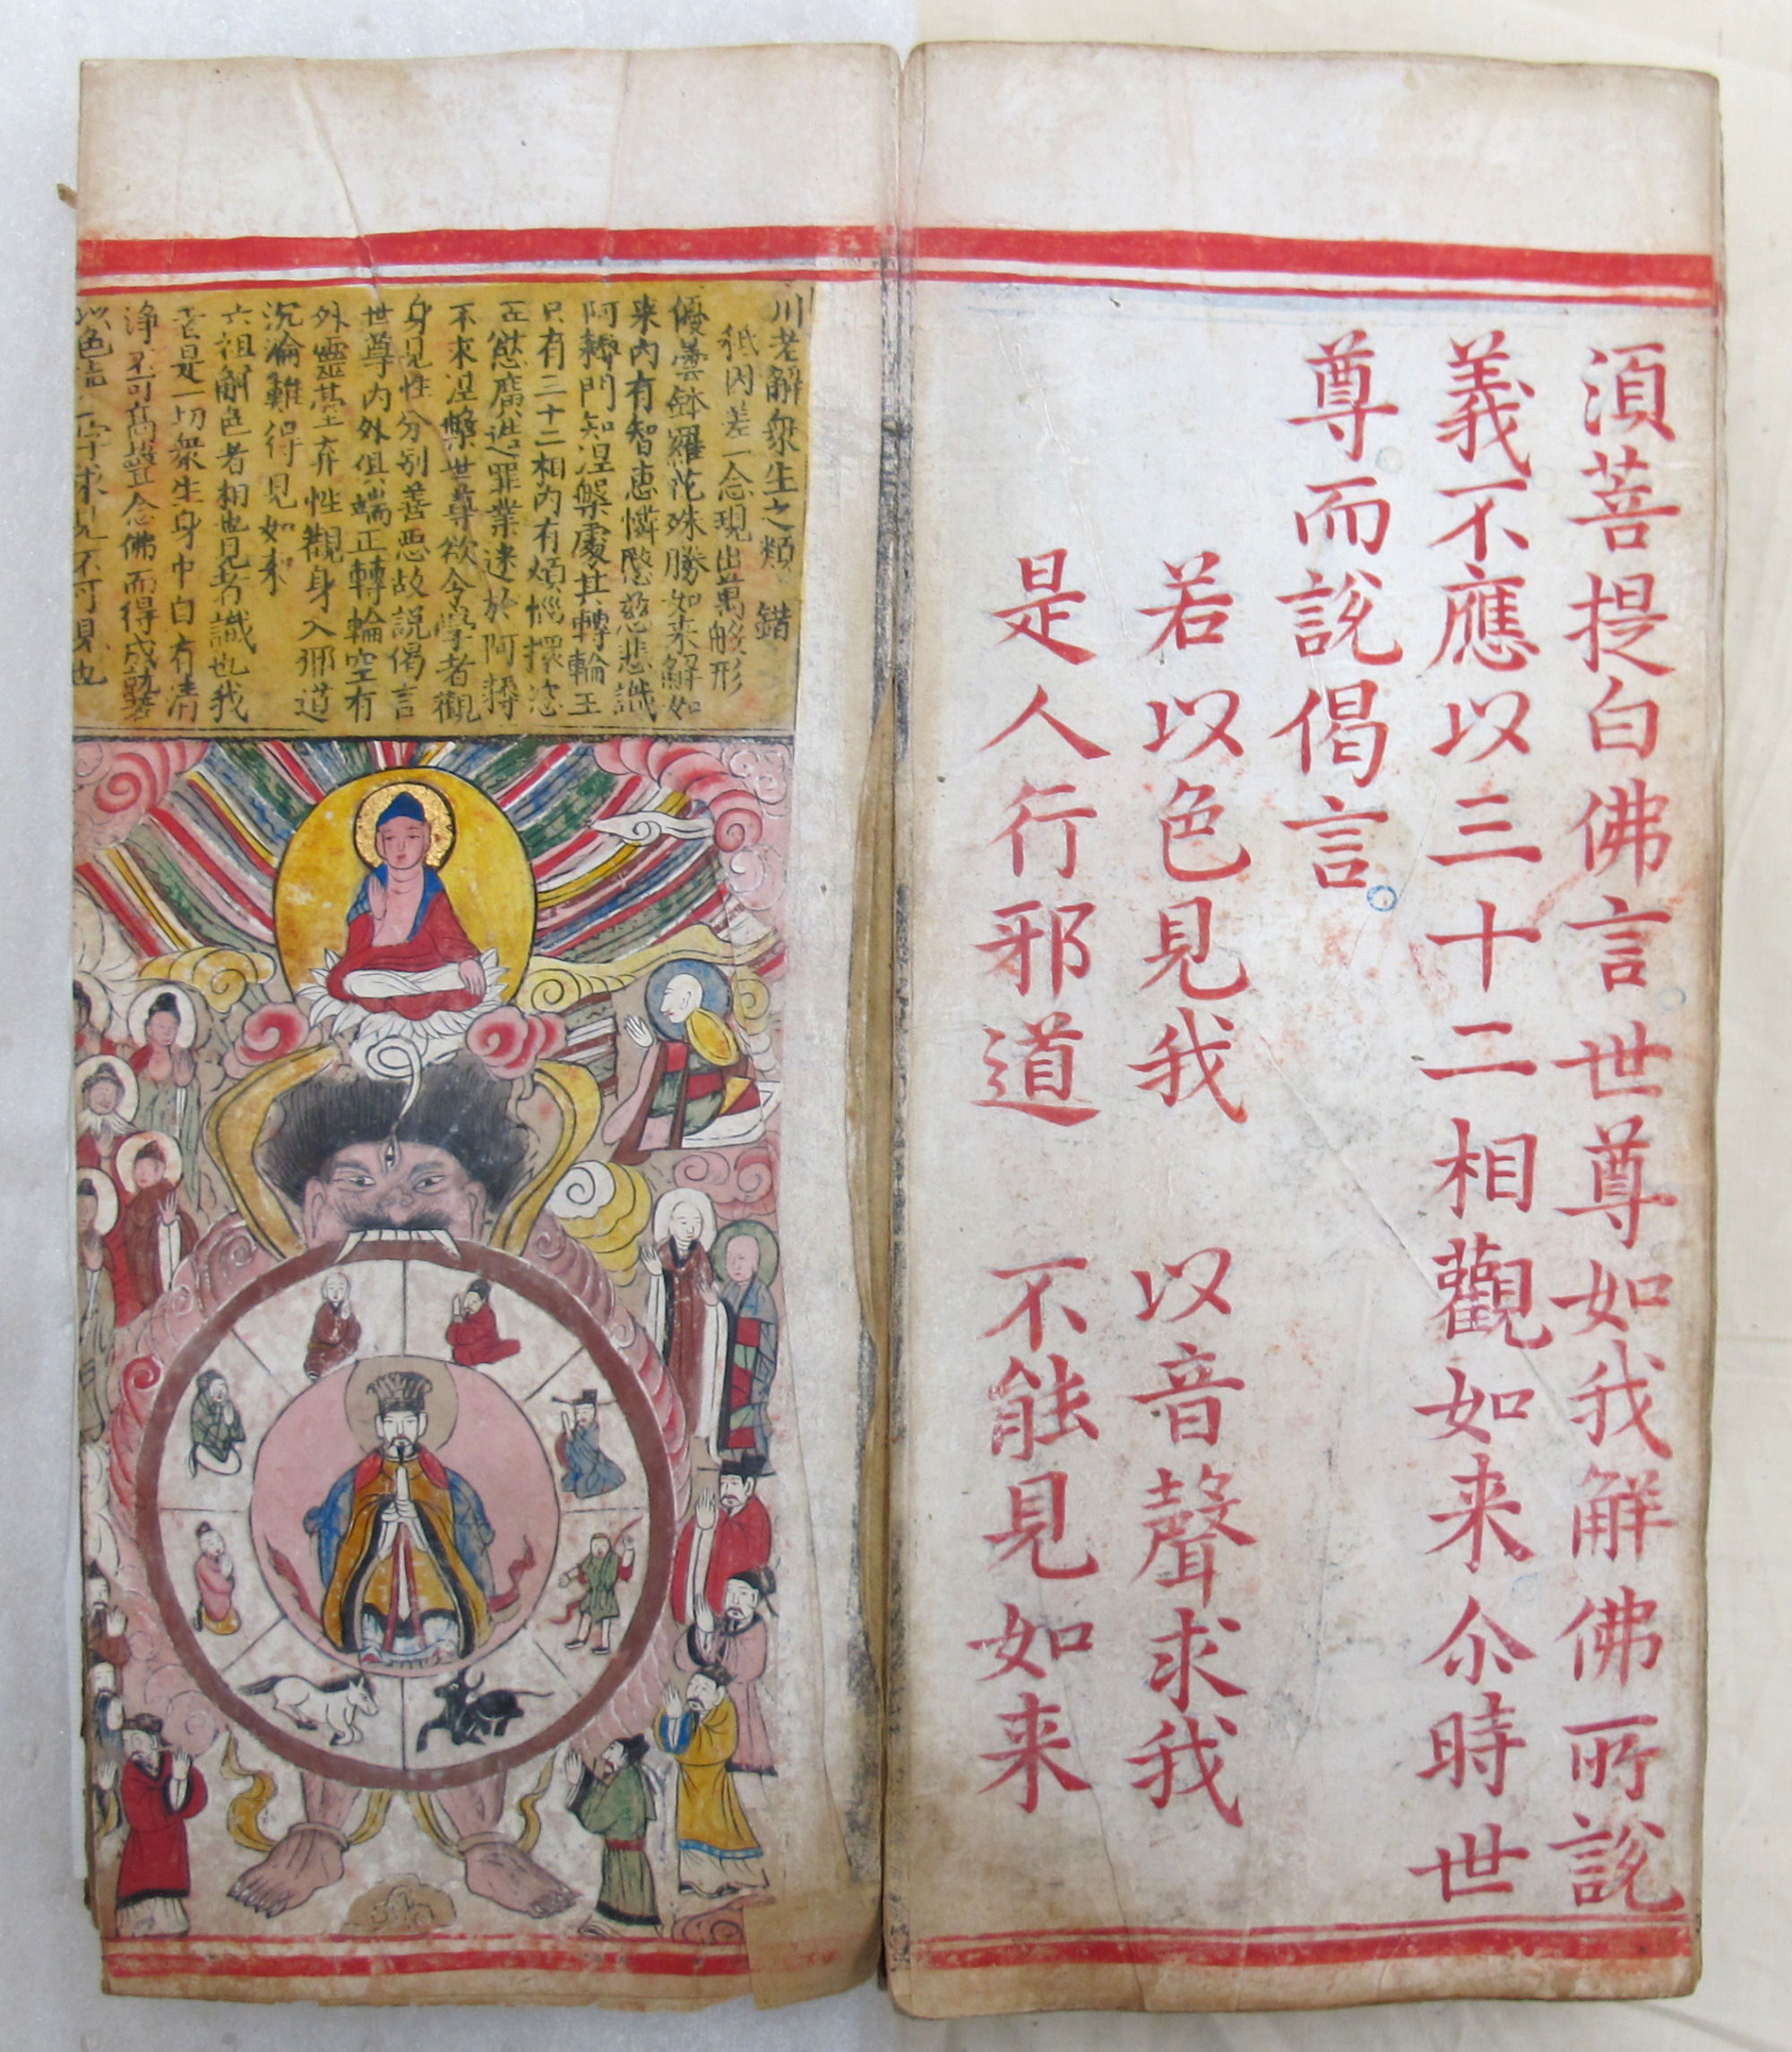 湏菩提白佛言世尊如我解佛所說
義不應以三十二相觀如来尒時世
尊而說偈言
若以色見我 以音聲求我
是人行邪道 不能見如来
川老解衆生之類 錯
秪因差一念現出萬般形
優曇鉢羅花殊勝如来解如
来内有智恵憐愍慈悲識
阿耨門知涅槃處其轉輪王
只有三十二相内有煩惱擐
恣慾廣造罪業達於阿耨
不求涅槃世尊欲令學者觀
身見性分别善惡故說偈言
世尊内外俱端正轉輪空有
外靈基弃性觀身入邪道
沉淪難得見如来
六祖解色者相也見者識也我
者是一切衆生身中自有清
淨 不可高聲念佛而得成就
以色言 求見不可見也